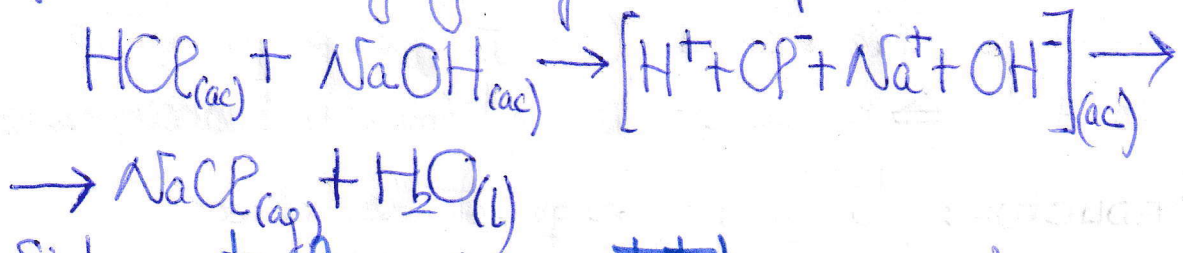 HCl(ac) + NaOH(ac) → [H⁺ + Cl⁻ + Na⁺ + OH⁻](ac) →
→ NaCl(aq) + H₂O(l)